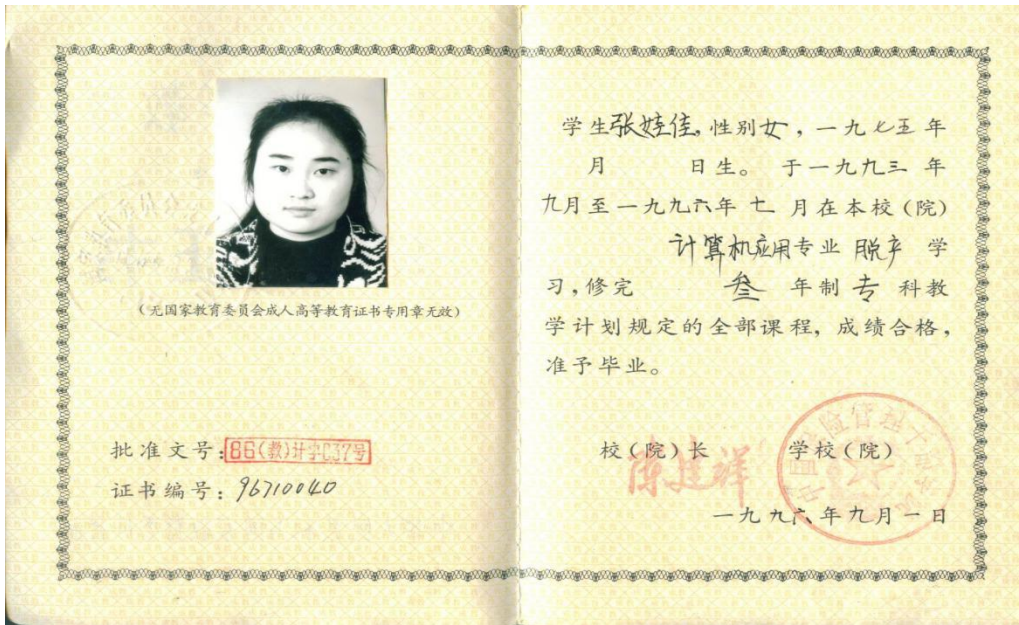 (无国家教育委员会成人高等教育证书专用章无效)
批准文号:86(教)计字037号
证书编号:96710040
学生张婷佳,性别女,一九七五年
月 日生。于一九九三年
九月至一九九六年七月在本校(院)
计算机应用专业脱产学
习,修完叁年制专科教
学计划规定的全部课程,成绩合格,
准予毕业。
校(院)长 学校(院)
陈建祥
一九九六年九月一日